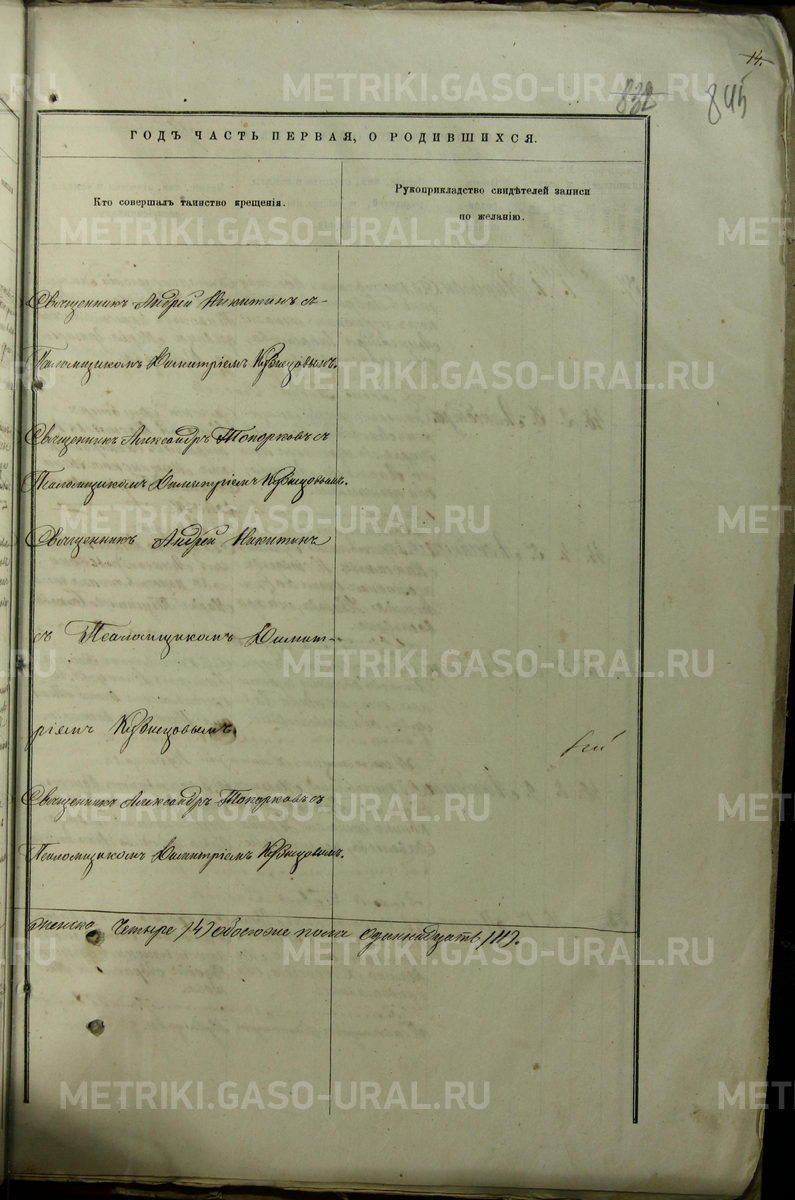 14.
832
845
ГОДЪ ЧАСТЬ ПЕРВАЯ, О РОДИВШИХСЯ.
Кто совершалъ таинство крещенія.
Рукоприкладство свидѣтелей записи
по желанію.
Священникъ Андрей Никитинъ съ
Псаломщикомъ Димитріемъ Кузнецовымъ.
Священникъ Александръ Топорковъ съ
Псаломщикомъ Димитріемъ Кузнецовымъ.
Священникъ Андрей Никитинъ
съ Псаломщикомъ Димит-
ріемъ Кузнецовымъ.
Священникъ Александръ Топорковъ съ
Псаломщикомъ Димитріемъ Кузнецовымъ.
женска четыре /4/ обоего же пола одиннадцать /11/.
METRIKI.GASO-URAL.RU